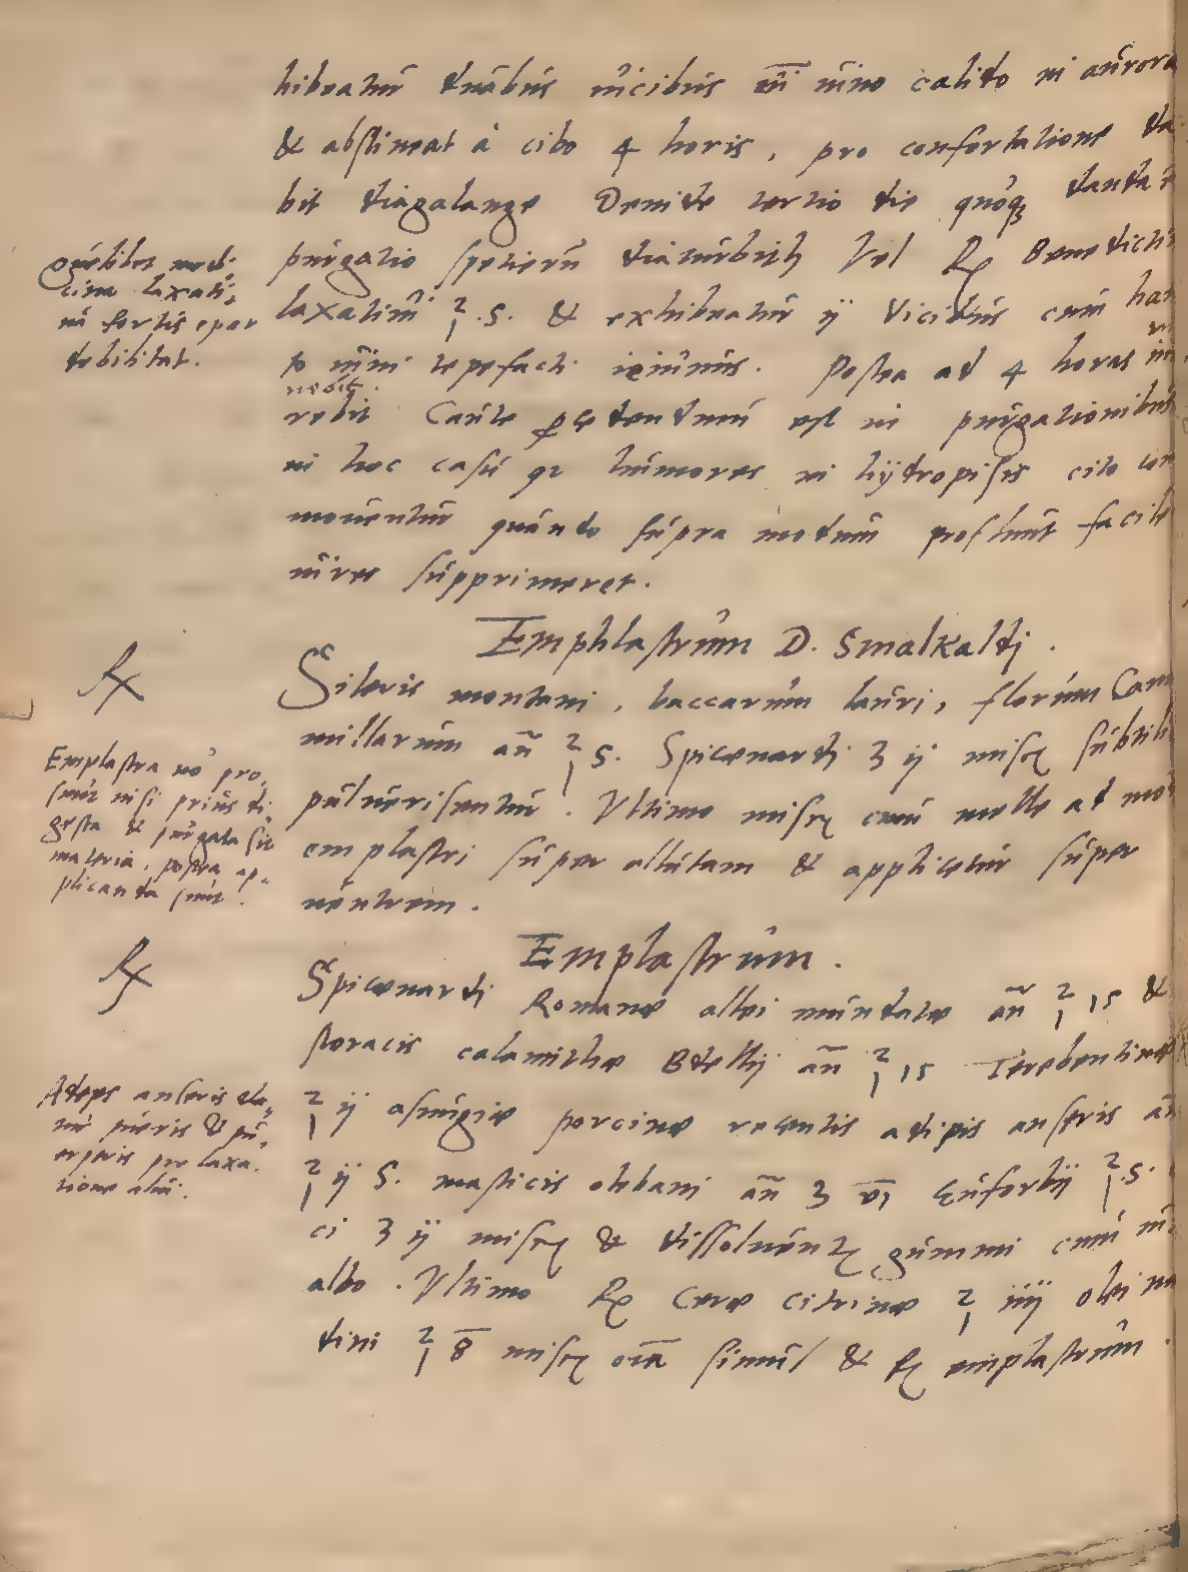 hibeatur duabus vicibus cũ vino calido in aurora
& abstineat à cibo 4 horis, pro confortatione da
bit diagalange Deinde tertio die quoq3 danda
purgatio specierũ diaturbith Vel ℞ Benedicte
laxativã ℥ .s. & exhibeatur ij Vicibus cum hau
to vini tepefacti ieiunus. Postea ad 4 horas
redit Caute procedendum est in purgationibus
in hoc casu qr humores in hijdropisis cito com
moventur quando supra modum facile
vires supprimeret.
Quélibet medi-
cina laxati-
va fortis epar
debilitat.
Emphlastrum D. Smalkaldi.
℞
Sileris montani, baccarum lauri, florum Cam
millarum añ ℥ s. Spicænardi ʒ ij misc subtili
pulverisentur. Ultimo misc cum melle ad mo
emplastri super allutam & applicetur super
ventrem.
Emplastra nõ pro-
sunt nisi prius di-
gesta & purgata sit
materia, postea ap-
plicanda sunt.
Emplastrum.
℞
Spicænardi Romanæ allei mundatæ añ ℥ 1s &
storacis calamithæ Bdellij añ ℥ 1s Terebentinæ
℥ ij asungiæ porcinæ recentis adipis anseris añ
℥ ij s. masticis olebani añ ʒ vi Euforbij ℥ .s.
ci ʒ ij misc & dissolventr gummi cum vi
albo. Ultimo ℞ Ceræ citrinæ ℥ iiij olei
dini ℥ 8 misc oĩa simul & f emplastrum.
Adeps anseris da-
tur pueris & pu-
erperis pro laxa-
tione alvi.